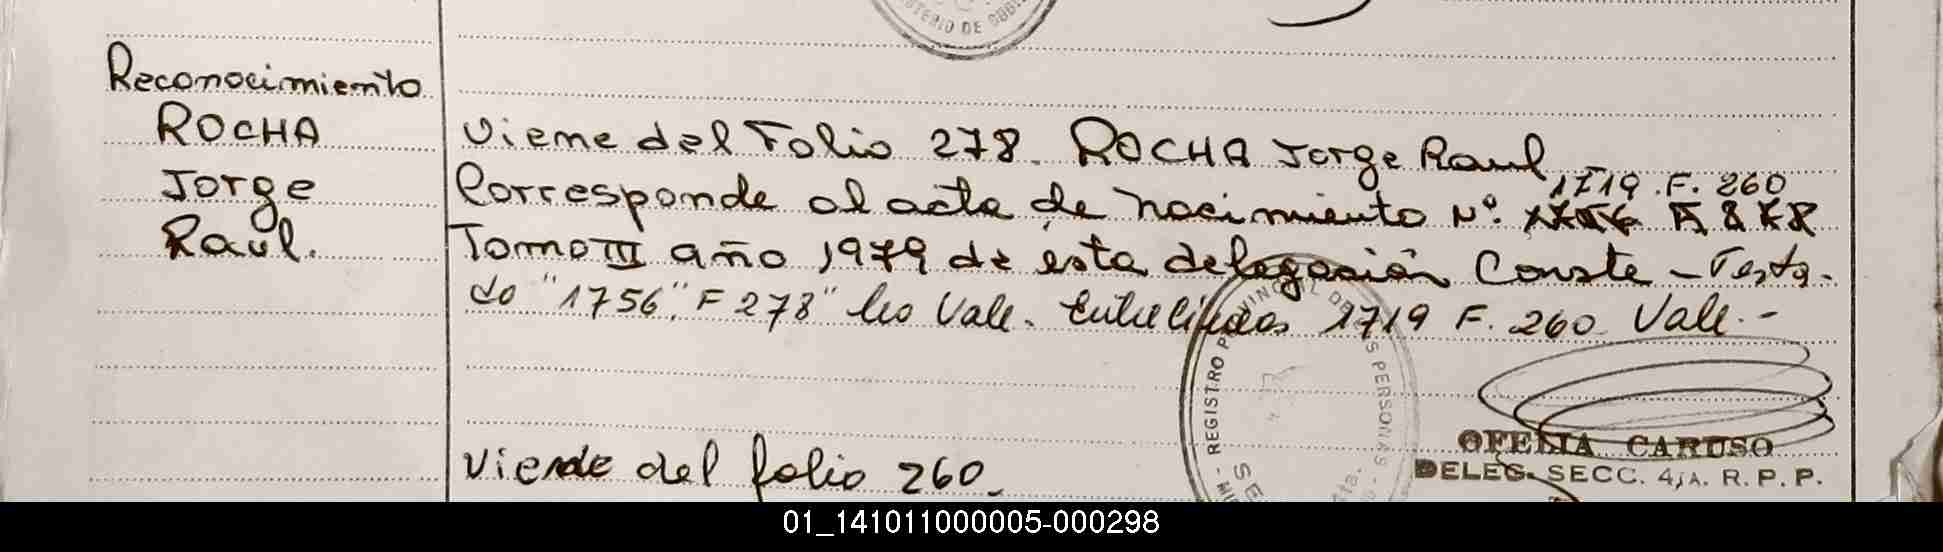 MINISTERIO DE GOBI
Reconocimiento
ROCHA
Jorge
Raul.
Viene del Folio 278. ROCHA Jorge Raul
Corresponde al acta de nacimiento Nº. 1719. F. 260
Tomo III año 1979 de ésta delegación Conste - Testa-
do "1756", F 278" no Vale. Entrelineas 1719 F. 260 Vale.-
REGISTRO PROVINCIAL DE LAS PERSONAS
OFELIA CARUSO
DELEG. SECC. 4ª. R. P. P.
Viene del folio 260.
01_141011000005-000298